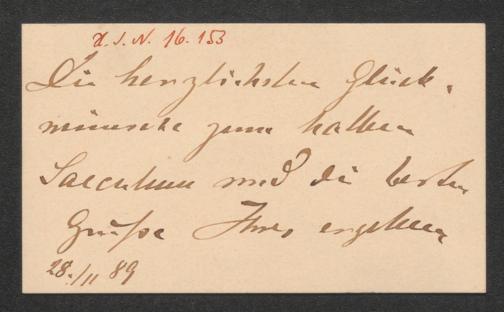 H. I. N. 16.153
Die herzlichsten Glück-
wünsche zum halben
Saeculum und die besten
Grüße Ihres ergebenen
28./11 89